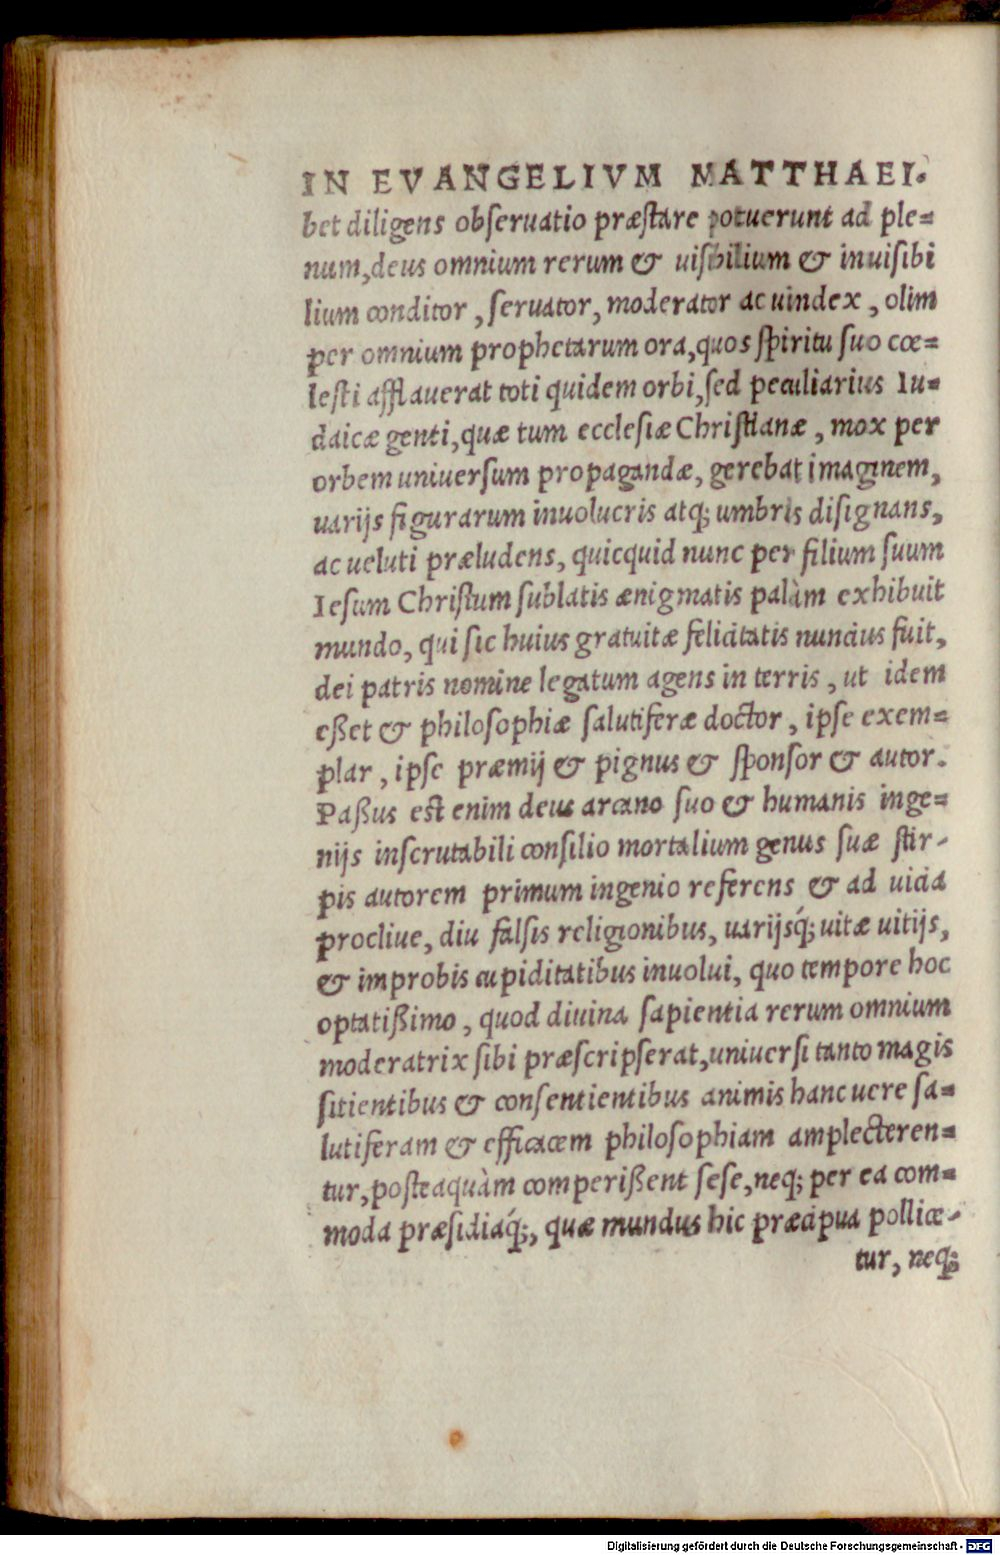 IN EVANGELIVM MATTHAEI.
bet diligens obſeruatio præſtare potuerunt ad ple=
num,deus omnium rerum & uiſibilium & inuiſibi
lium conditor , ſeruator, moderator ac uindex , olim
per omnium prophetarum ora,quos ſpiritu ſuo cœ=
leſti afflauerat toti quidem orbi,ſed peculiarius Iu=
daicæ genti,quæ tum eccleſiæ Chriſtianæ , mox per
orbem uniuerſum propagandæ, gerebat imaginem,
uarijs figurarum inuolucris atq; umbris diſignans,
ac ueluti præludens, quicquid nunc per filium ſuum
Ieſum Chriſtum ſublatis ænigmatis palàm exhibuit
mundo, qui ſic huius gratuitæ felicitatis nuncius fuit,
dei patris nomine legatum agens in terris , ut idem
eßet & philoſophiæ ſalutiferæ doctor , ipſe exem=
plar , ipſe præmij & pignus & ſponſor & autor.
Paßus est enim deus arcano ſuo & humanis inge=
nijs inſcrutabili conſilio mortalium genus ſuæ ſtir-
pis autorem primum ingenio referens & ad uicia
procliue, diu falſis religionibus, uarijsq́; uitæ uitijs,
& improbis cupiditatibus inuolui, quo tempore hoc
optatißimo , quod diuina ſapientia rerum omnium
moderatrix ſibi præſcripſerat,uniuerſi tanto magis
ſitientibus & conſentientibus animis hanc uere ſa=
lutiferam & efficacem philoſophiam amplecteren=
tur,poſteaquàm comperißent ſeſe,neq; per ea com=
moda præſidiaq́;, quæ mundus hic præcipua pollice-
tur, neq;
Digitalisierung gefördert durch die Deutsche Forschungsgemeinschaft - DFG